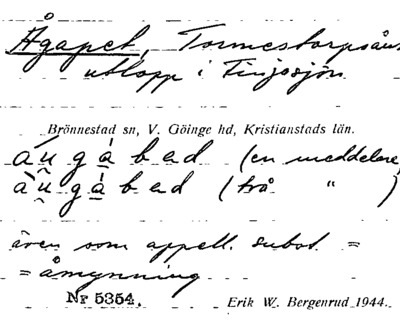 Ågapet, Tormestorpsåns
utlopp i Finjasjön.
Brönnestad sn, V. Göinge hd, Kristianstads län.
áu̯gàbad (en meddelare)
àu̯gábad (två " )
även som appell. subst. =
= åmynning
Nr 5354. Erik W. Bergenrud 1944.